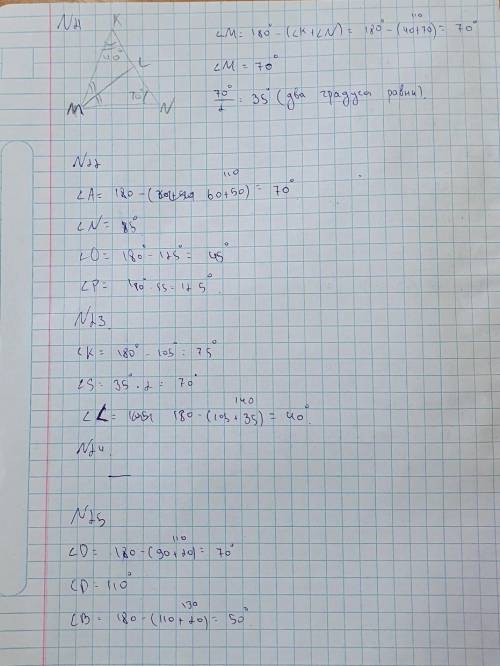 K
∠M = 180° - (∠K + ∠N) = 180° - (40+70) = 70°
110
40°
L
∠M = 70°
M
70°
N
70°/2 = 35° (два градуса равны).
N22
110
∠A = 180 - (60+50) = 70°
∠N = 85°
∠O = 180° - 125° = 45°
∠P = 180° - 55 = 125°
N23
∠K = 180° - 105° = 75°
∠S = 35° · 2 = 70°
140
∠L = 180 - (105 + 35) = 40°
N24
—
N25
110
∠D = 180 - (90+20) = 70°
∠D = 110°
130
∠B = 180 - (110 + 20) = 50°